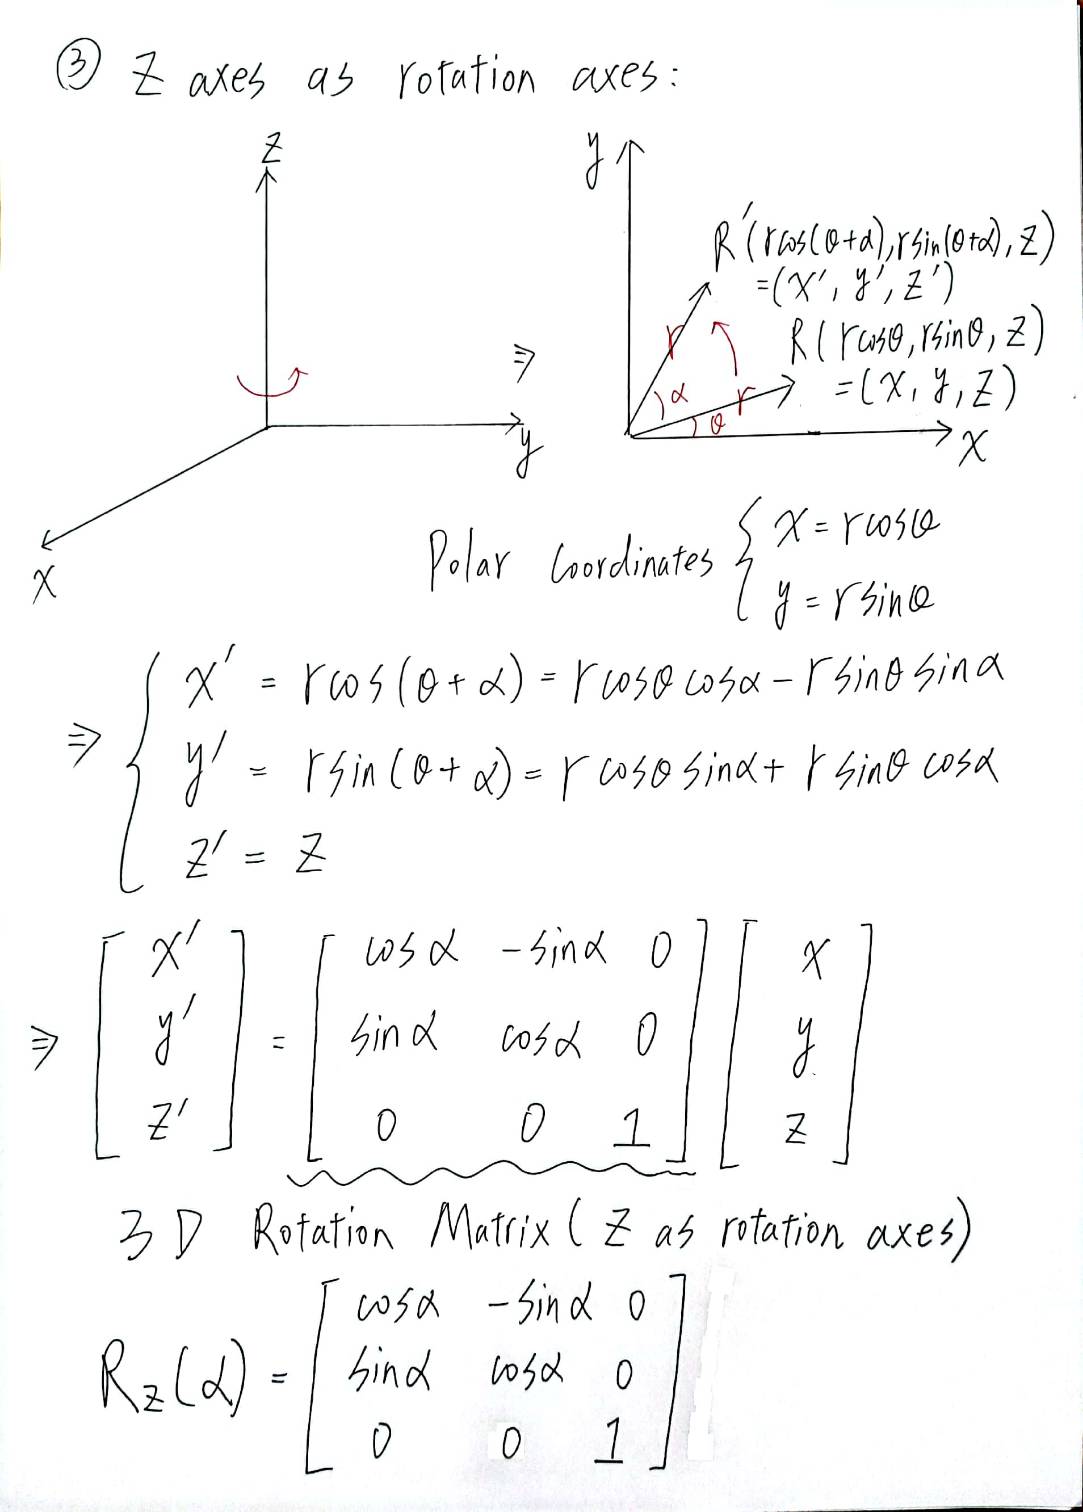 ③ Z axes as rotation axes:
Z
y
X
⇒
y
R'(rcos(θ+α), rsin(θ+α), Z)
=(X', y', Z')
R(rcosθ, rsinθ, Z)
=(X, y, Z)
r
α
r
θ
X
Polar Coordinates { X = rcosθ
y = rsinθ
⇒ { X' = rcos(θ+α) = rcosθcosα - rsinθsinα
y' = rsin(θ+α) = rcosθsinα + rsinθcosα
Z' = Z
⇒ [ X' ] = [ cosα -sinα 0 ] [ X ]
[ y' ] [ sinα cosα 0 ] [ y ]
[ Z' ] [ 0 0 1 ] [ Z ]
3D Rotation Matrix (Z as rotation axes)
[ cosα -sinα 0 ]
R_Z(α) = [ sinα cosα 0 ]
[ 0 0 1 ]